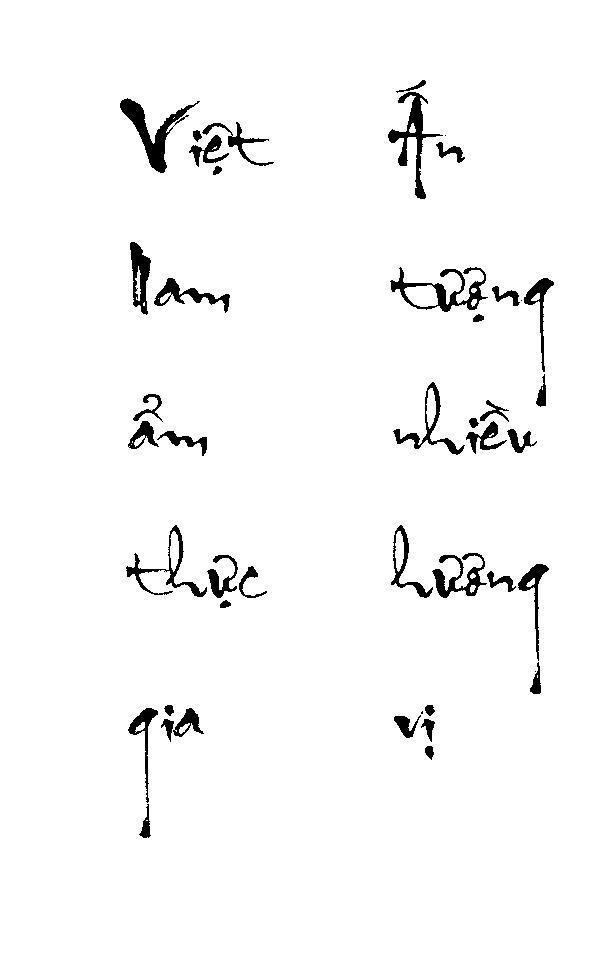 Việt
Nam
ẩm
thực
gia
Ấn
tượng
nhiều
hương
vị